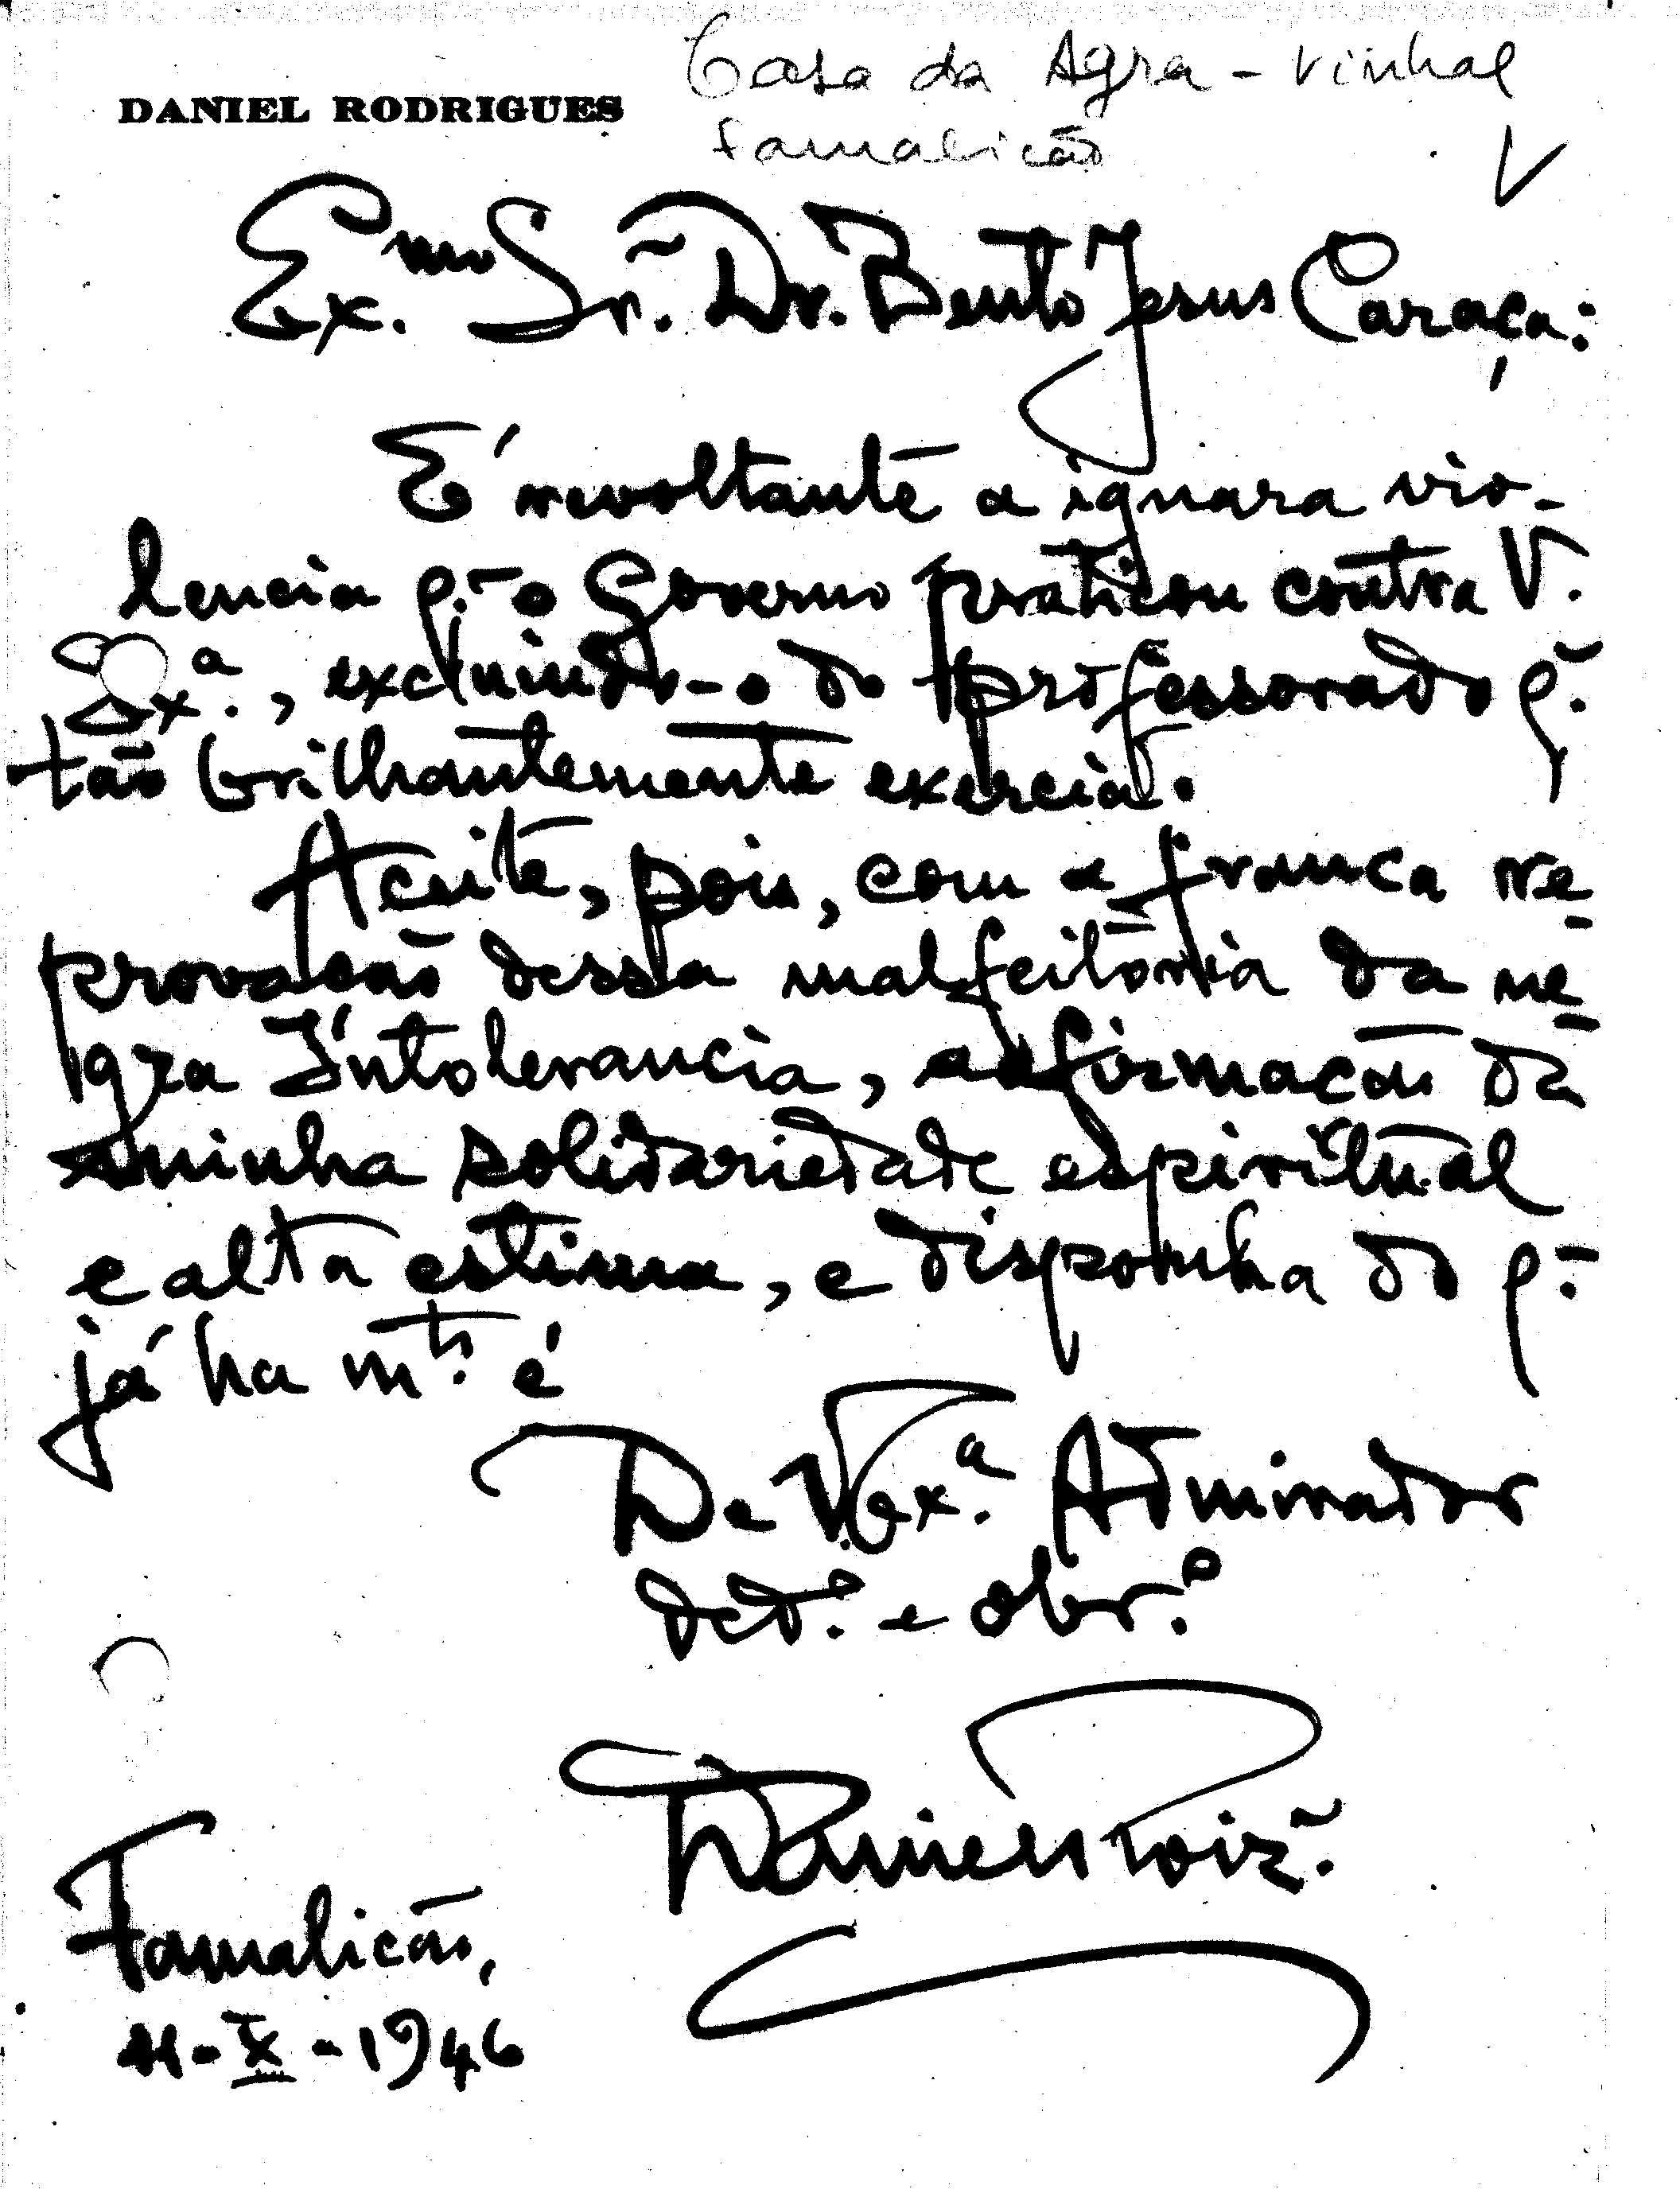 Casa da Agra - Vinhal
DANIEL RODRIGUES
Famalicão
V
Ex.mo Sr. Dr. Bento Jesus Caraça:
É revoltante a ignara vio-
lencia q. o Governo praticou contra V.
Ex.a, excluindo-o do professorado q.
tão brilhantemente exercia.
Aceite, pois, com a franca re-
provação dessa malfeitoria da ne-
gra Intolerancia, a afirmação da
minha solidariedade espiritual
e alta estima, e disponha do q.
já ha mt.º é
De V. Ex.a Admirador
ded.º e obr.º
Daniel Roiz.
Famalicão,
11-X-1946